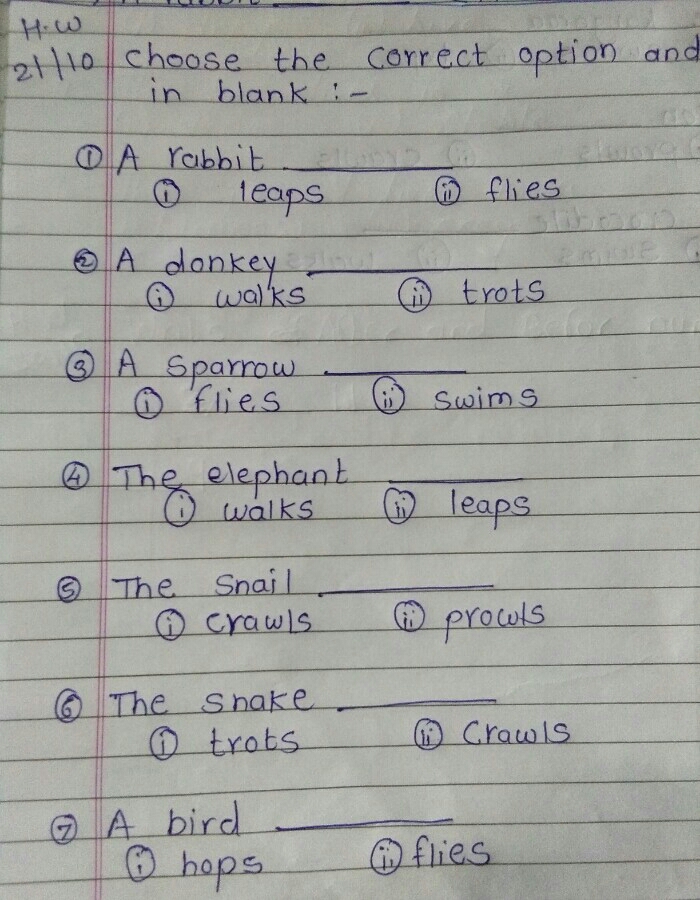 H.W
21/10 choose the correct option and
in blank :-
① A rabbit ________
ⓘ leaps ⓘⓘ flies
② A donkey ________
ⓘ walks ⓘⓘ trots
③ A sparrow ________
ⓘ flies ⓘⓘ swims
④ The elephant ________
ⓘ walks ⓘⓘ leaps
⑤ The Snail ________
ⓘ crawls ⓘⓘ prowls
⑥ The snake ________
ⓘ trots ⓘⓘ Crawls
⑦ A bird ________
ⓘ hops ⓘⓘ flies